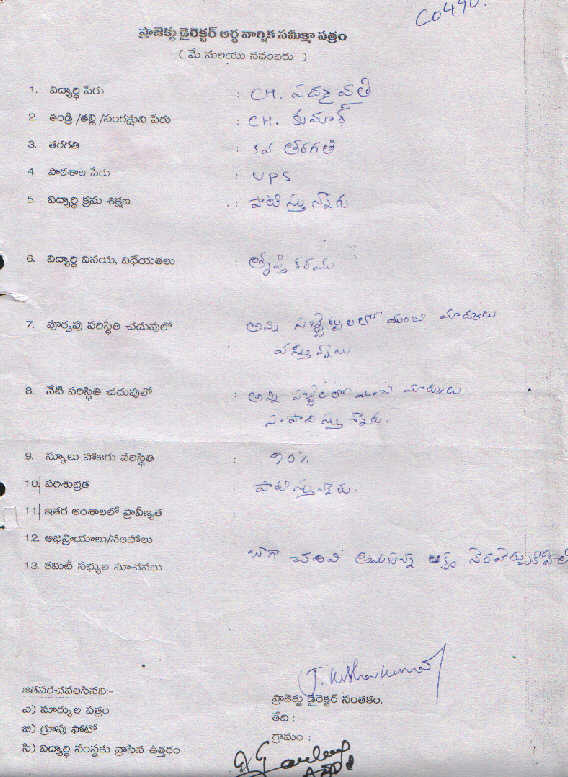 C0490.
ప్రాజెక్టు డైరెక్టర్ అర్ధ వార్షిక సమీక్షా పత్రం
( మే నుంచియు నవంబరు )
1. విద్యార్థి పేరు : CH.
2. తండ్రి /తల్లి /సంరక్షకుని పేరు : CH. కుమార్
3. తరగతి : తరగతి
4. పాఠశాల పేరు : UPS
5. విద్యార్థి క్రమ శిక్షణ : పాటిస్తున్నారు
6. విద్యార్థి వినయ, విధేయతలు
7. పూర్వపు పరిస్థితి చదువులో అన్ని సబ్జెక్టులలో మంచి మార్కులు
వస్తున్నాయి
8. నేటి పరిస్థితి చదువులో : అన్ని సబ్జెక్టులలో మంచి మార్కులు
సంపాదిస్తున్నారు.
9. స్కూలు హాజరు పరిస్థితి : 90%
10. పరిశుభ్రత : పాటిస్తున్నారు.
11. ఇతర అంశాలలో ప్రావీణ్యత
12. అభిప్రాయాలు/సలహాలు
బాగా చదివి
13. కమిటీ సభ్యుల సూచనలు
జతపరచవలసినవి:-
ఎ) మార్కుల పత్రం
బి) గ్రూపు ఫోటో
సి) విద్యార్థి సంస్థకు వ్రాసిన ఉత్తరం
ప్రాజెక్టు డైరెక్టర్ సంతకం.
తేది :
గ్రామం :